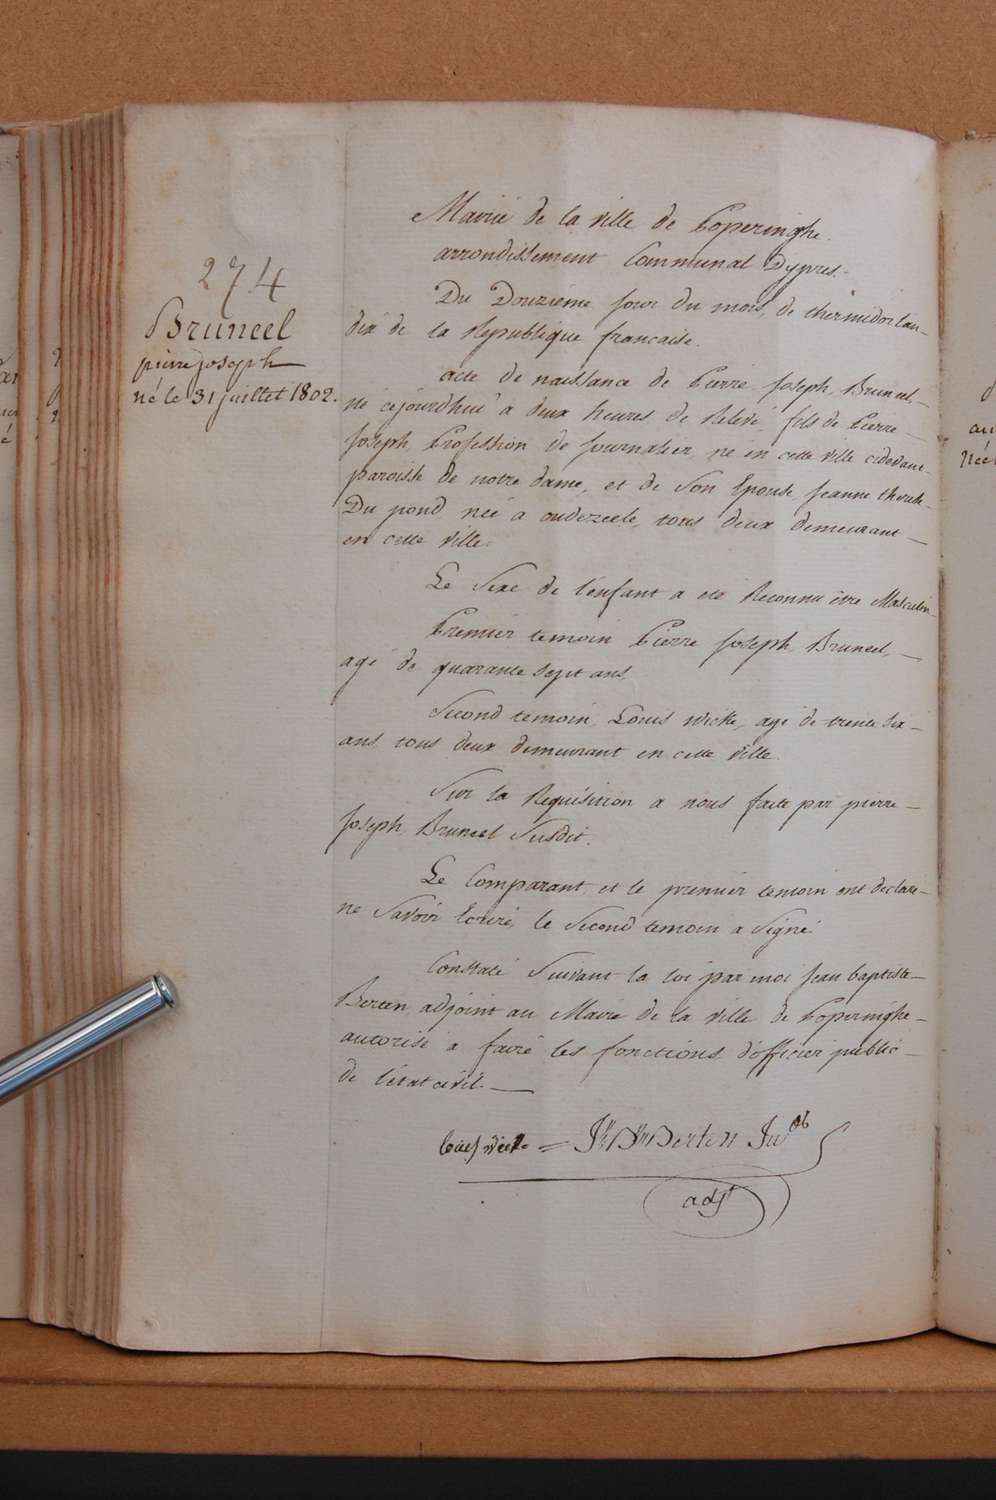 274
Bruneel
pierre joseph
né le 31 juillet 1802.
Mairie de la ville de Poperinghe.
arrondissement Communal Dypres.
Du Douzieme Jour du mois de thermidor l'an
dix de la Republique francaise.
acte de naissance de Pierre Joseph Bruneel,
né cejourdhui a deux heures de Relevé, fils de Pierre
Joseph Profession de Journalier né en cette ville cidevant
paroisse de notre dame, et de Son Epouse Jeanne therese
Du pond née a oudezeele, tous deux demeurant
en cette ville.
Le Sexe de l'enfant a eté Reconnu être Masculin
Premier temoin Pierre Joseph Bruneel,
agé de quarante Sept ans
Second temoin Louis wicke, agé de trente Six
ans tous deux demeurant en cette ville.
Sur la Requisition a nous faite par pierre
Joseph Bruneel Susdit.
Le Comparant et le premier temoin ont declaré
ne Savoir Ecrire, le Second temoin a Signé
Constaté Suivant la loi par moi Jean baptiste
Berten adjoint au Maire de la ville de Poperinghe
autorisé a faire les fonctions d'officier public
de l'etat civil.
Berten
adjt